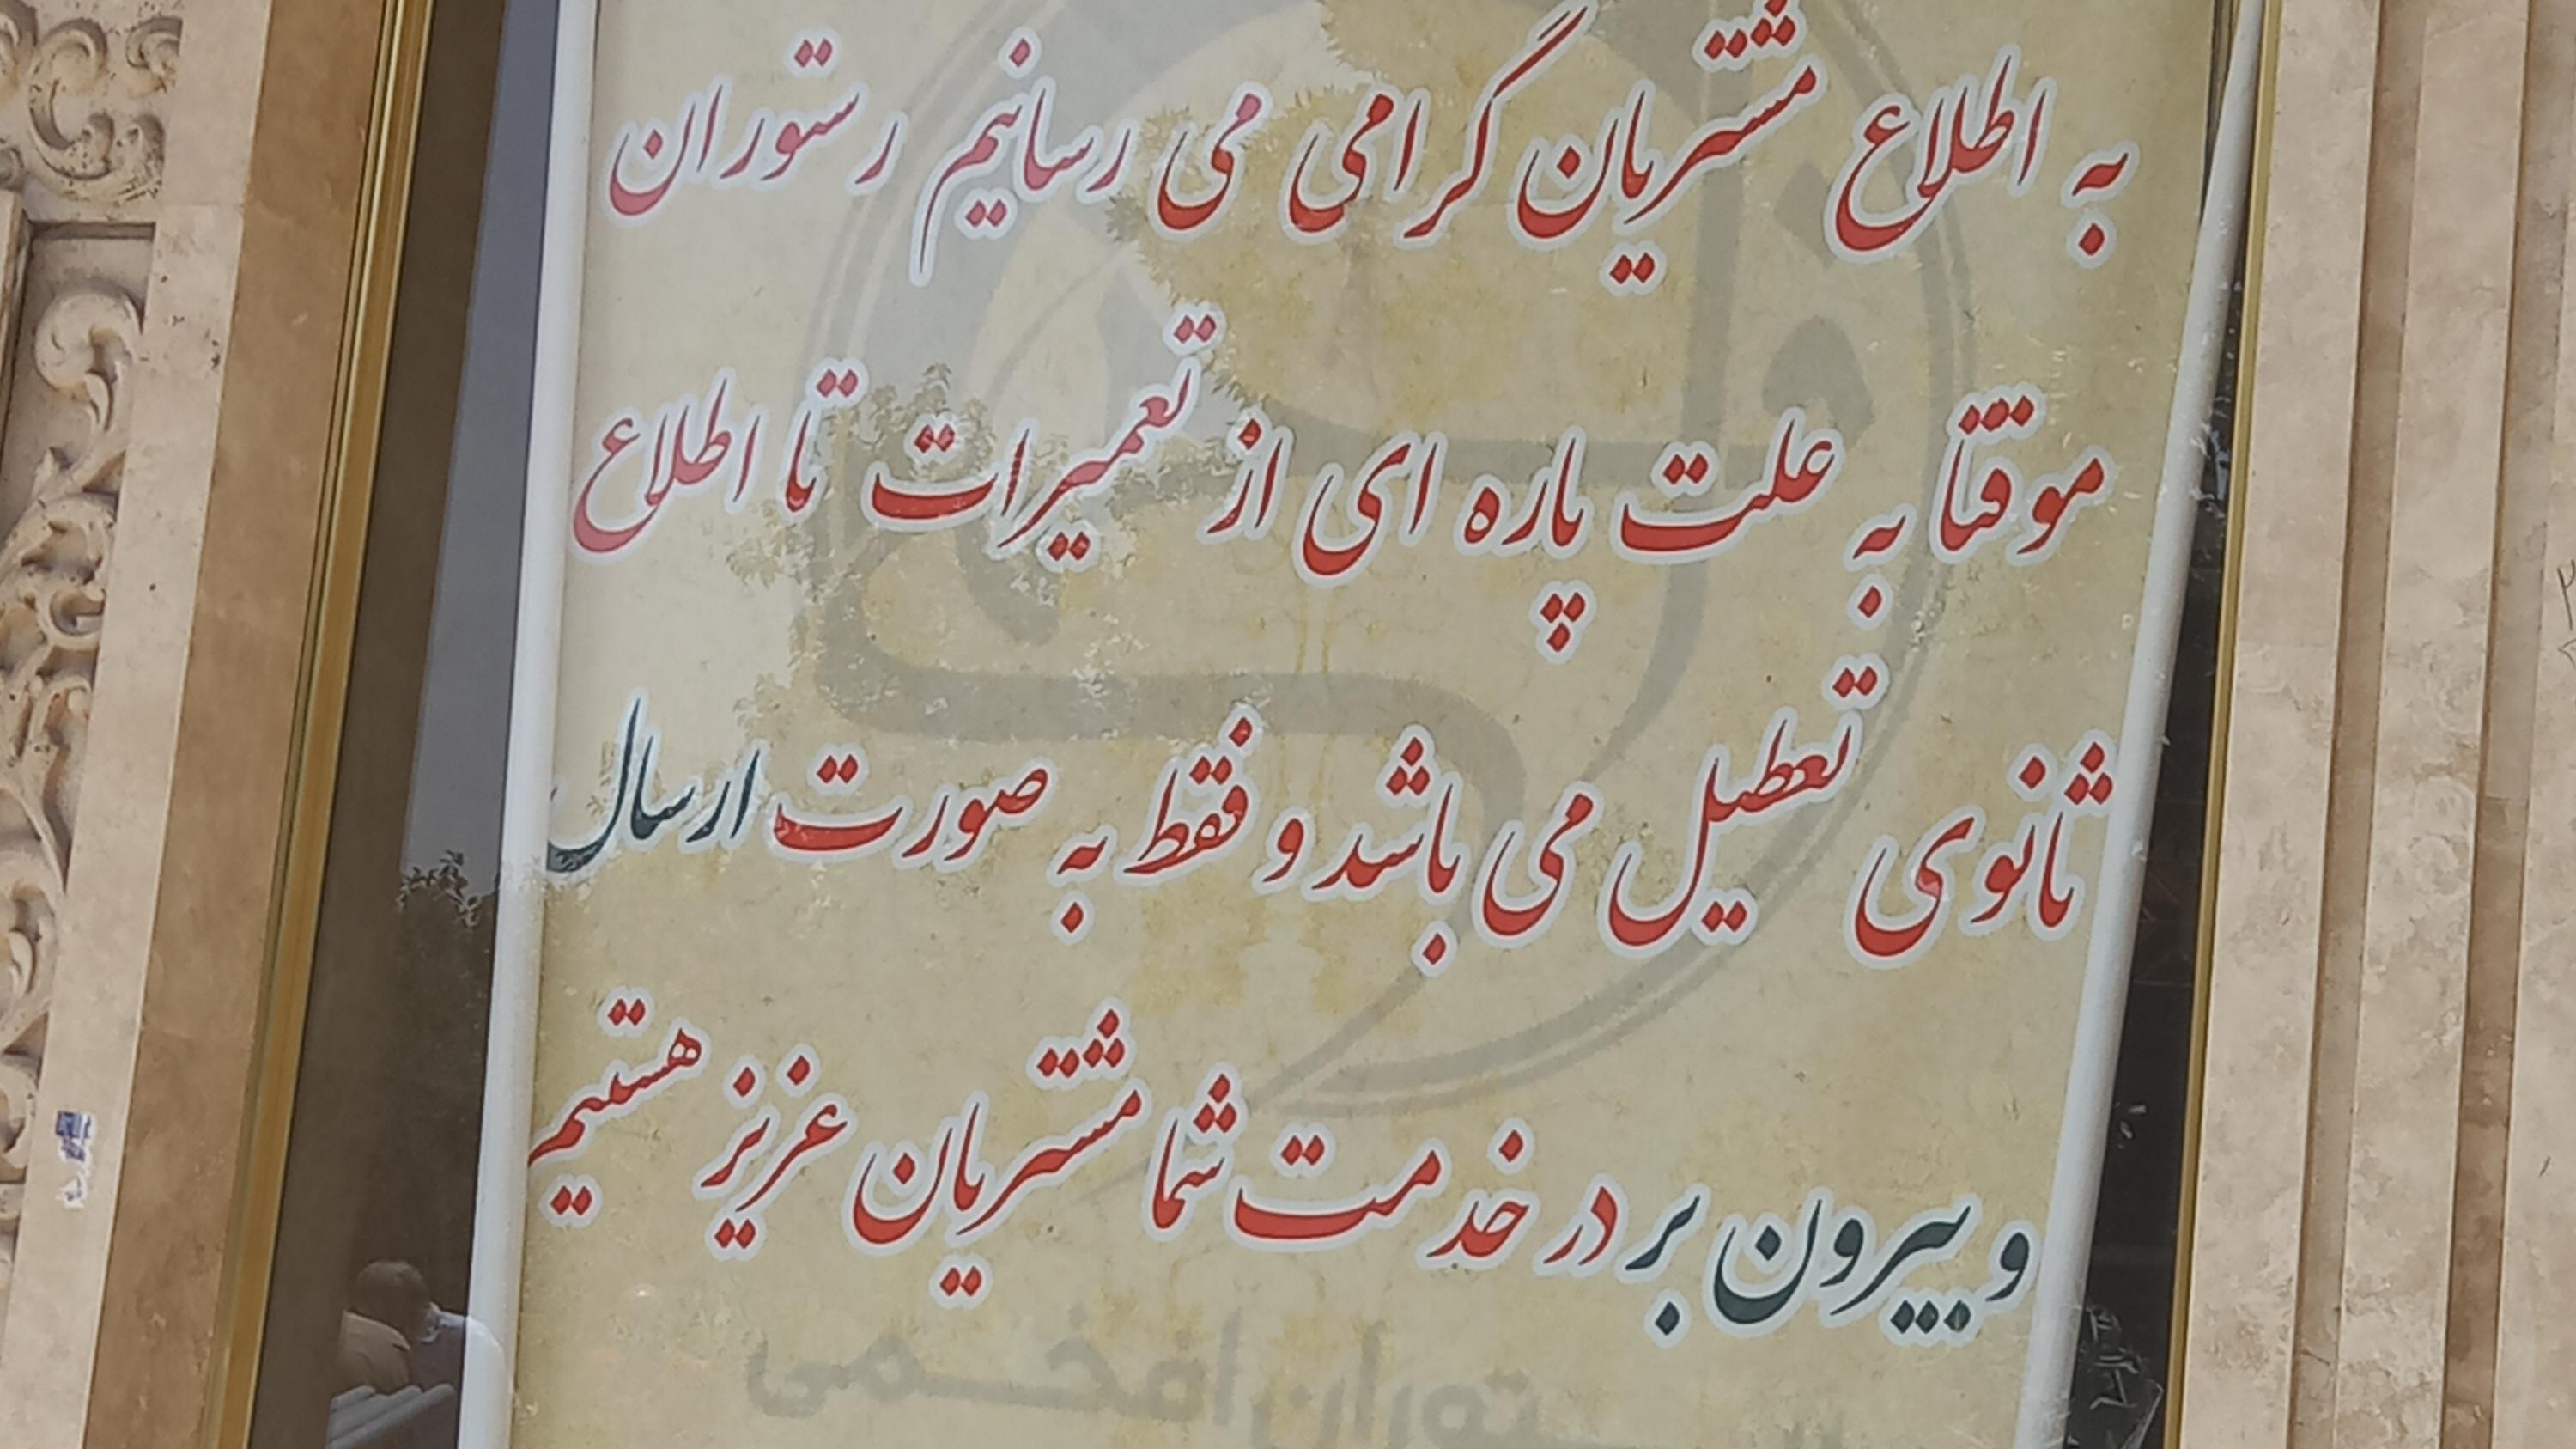 به اطلاع مشتریان گرامی می رسانیم رستوران
موقتا به علت پاره ای از تعمیرات تا اطلاع
ثانوی تعطیل می باشد و فقط به صورت ارسال
و بیرون بر در خدمت شما مشتریان عزیز هستیم